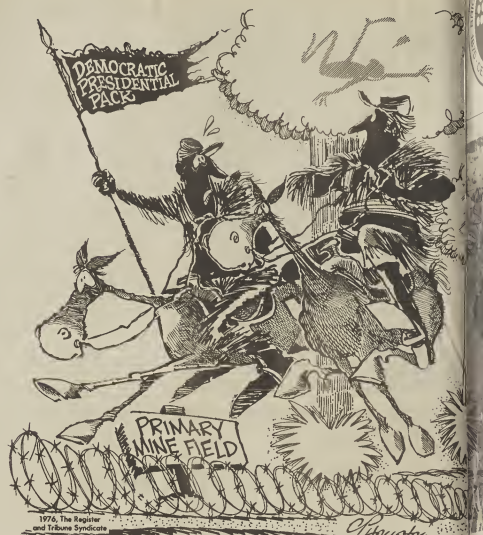 DEMOCRATIC
PRESIDENTIAL
PACK
PRIMARY
MINE FIELD
1976, The Register
and Tribune Syndicate